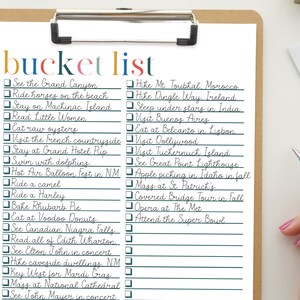 bucket list
See the Grand Canyon
Ride horses on the beach
Stay on Machinac Island
Read Little Women
Eat raw oysters
Visit the French countryside
Stay at Grand Hotel Rip
Swim with dolphins
Hot Air Balloon Fest in N.M
Ride a camel
Ride a Harley
Bake Rhubarb Pie
Eat at Voodoo Donuts
See Canadian Niagra Falls
Read all of Edith Wharton
See Elton John in concert
Hike caveside dwellings, NM
Key West for Mardi Gras
Mass at National Cathedral
See John Mayer in concert
Hike Mt. Toubhal, Morocco
Hike Dingle Way, Ireland
Sleep under stars in India
Visit Buenos Aires
Eat at Belcanto in Lisbon
Visit Dollywood
Visit Tuckernuck Island
See Great Point Lighthouse
Apple picking in Idaho in fall
Mass at St. Patrick's
Covered Bridge Tour in Fall
Opera at The Met
Attend the Super Bowl